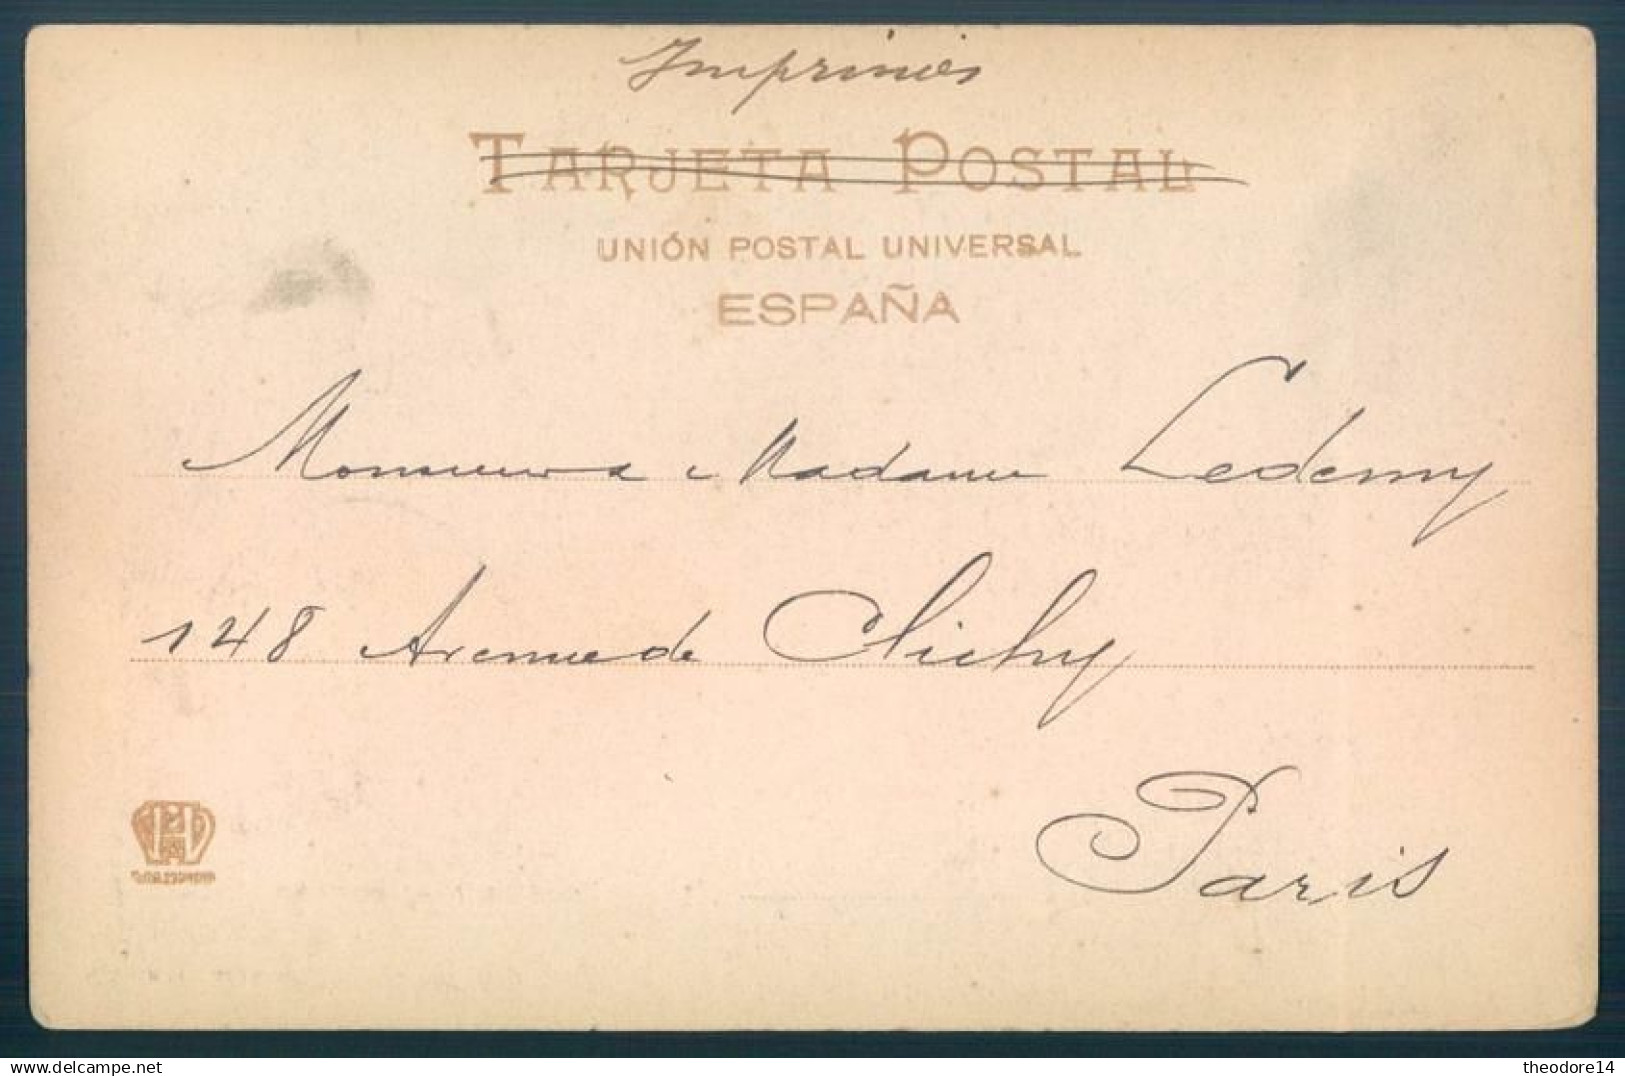 Imprimés
TARJETA POSTAL
UNIÓN POSTAL UNIVERSAL
ESPAÑA
Monsieur & Madame Ledemy
148 Avenue de Clichy
Paris
delcampe.net
theodore14